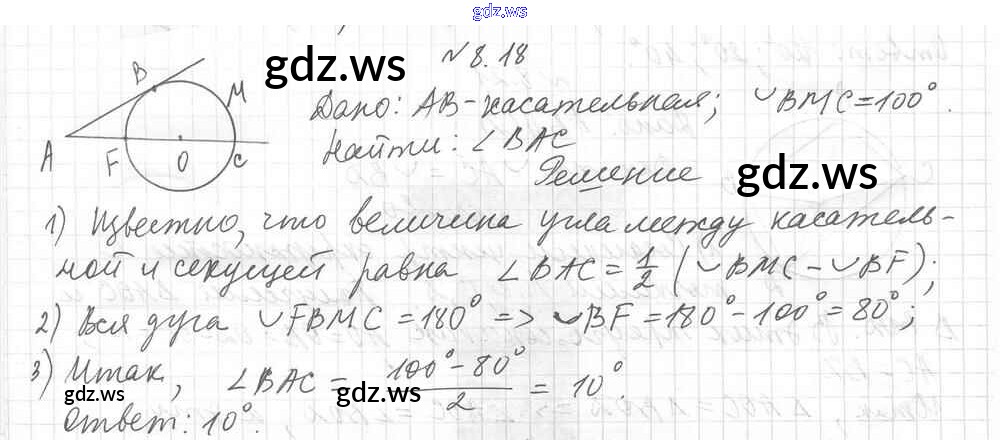 gdz.ws
№8.18
gdz.ws
B
M
A
F
O
C
Дано: AB-касательная; ◡BMC=100°.
Найти: ∠BAC
Решение
gdz.ws
1) Известно, что величина угла между касатель-
ной и секущей равна ∠BAC = 1/2 (◡BMC - ◡BF);
2) Вся дуга ◡FBMC = 180° => ◡BF = 180° - 100° = 80°;
3) Итак, ∠BAC = (100° - 80°)/2 = 10°.
gdz.ws
gdz.ws
Ответ: 10°.